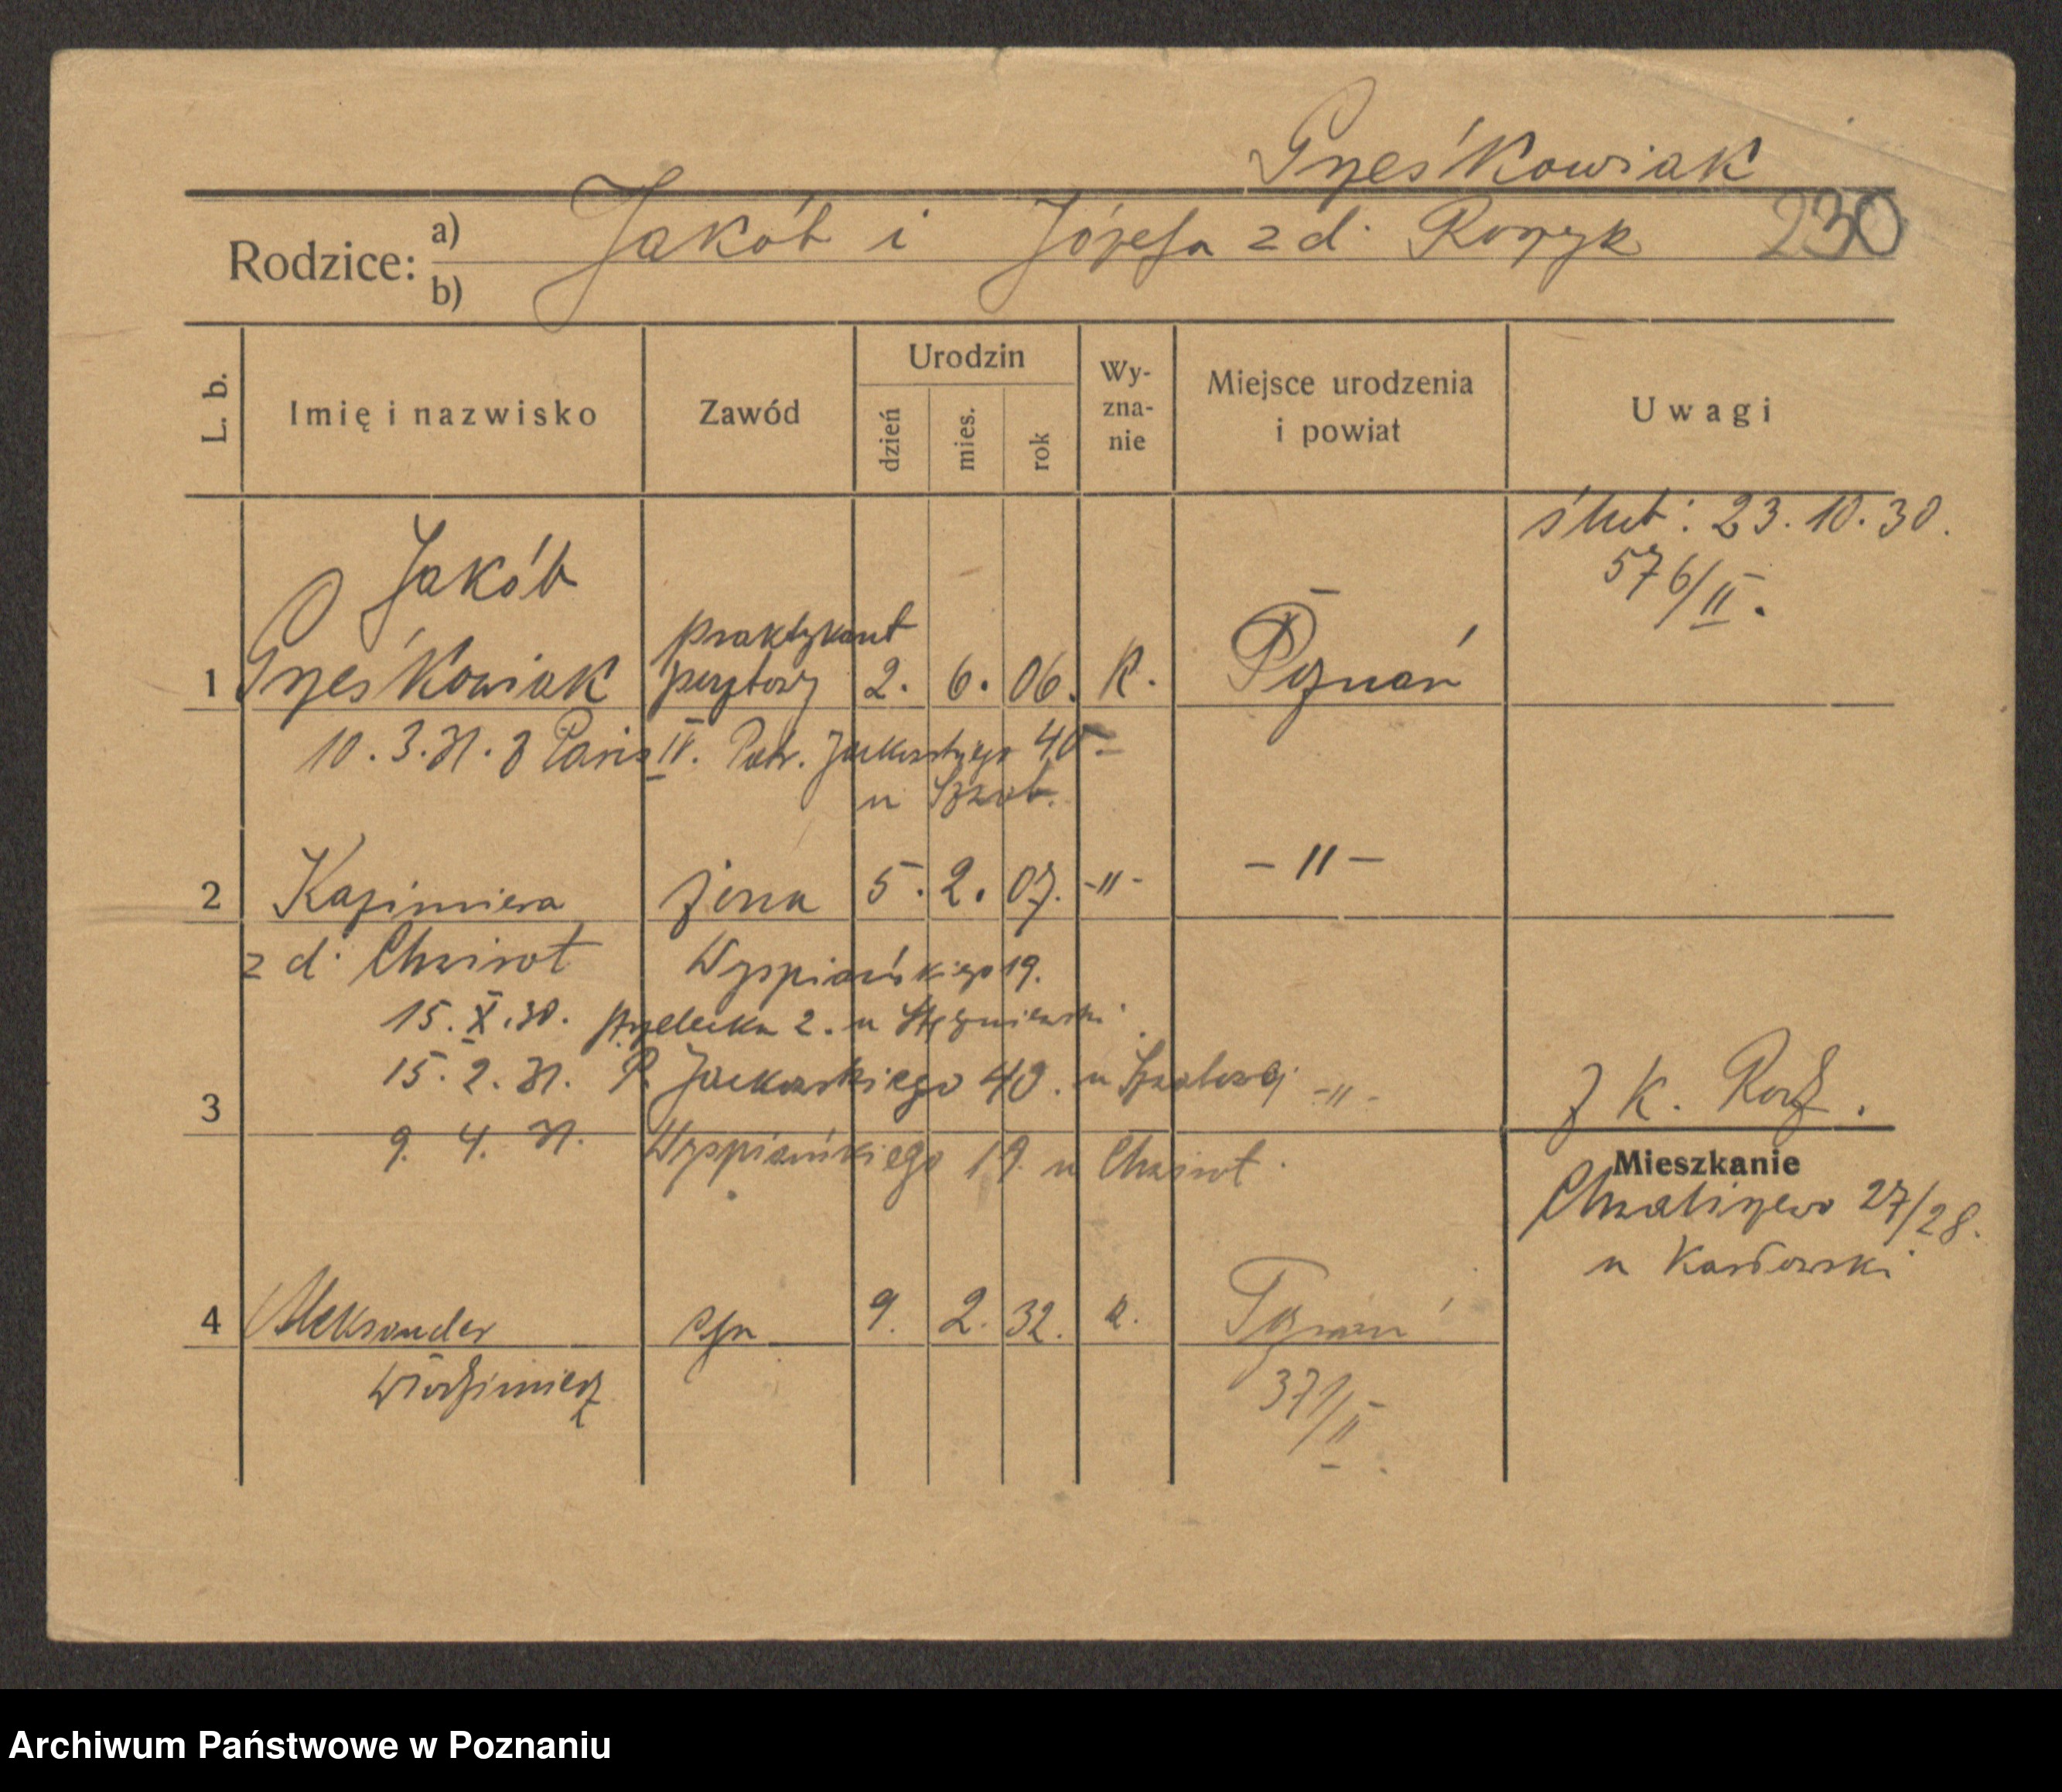 Grześkowiak
230
Rodzice: a) Jakób i Józefa z d.
b)
L. b. Imię i nazwisko Zawód Urodzin dzień mies. rok Wy-zna-nie Miejsce urodzenia i powiat Uwagi
ślub: 23.10.30.
576/II.
Jakób
praktykant
1 Grześkowiak 2. 6. 06. R. Poznań
10.3.31. z Paris IV. Patr. Jackowskiego 40
u
2 Kazimiera żona 5. 2. 07. -"- -"-
z d. Chwirot Wyspiańskiego 19.
15.X.30. Strzelecka 2. u
15.2.31. P. Jackowskiego 40. u -"-
3 z K.
9. 4. 31. Wyspiańskiego 19 u Chwirot.
Mieszkanie
Chwaliszewo 27/28.
u
4 Aleksander syn 9. 2. 32. R. Poznań
Włodzimierz
371/II.
Archiwum Państwowe w Poznaniu